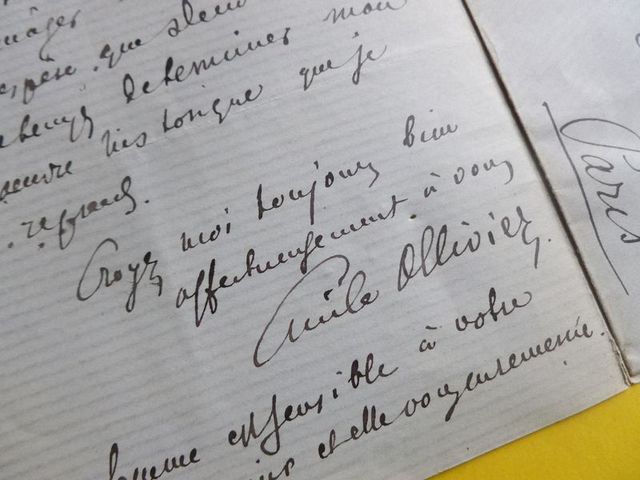 espère que
déterminer mon
œuvre historique que je
reprends.
Croyez moi toujours bien
affectueusement à vous
Emile Ollivier
femme est sensible à votre
et elle vous en remercie.
Paris